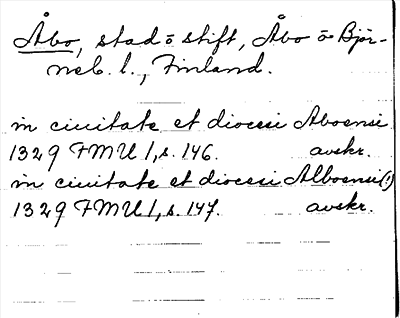 Åbo, stad o stift, Åbo o Björ-
neb. l., Finland.
in ciuitate et diocesi Aboensi
1329 FMU 1, s. 146. avskr.
in ciuitate et diocesi Alboensi (!)
1329 FMU 1, s. 147. avskr.